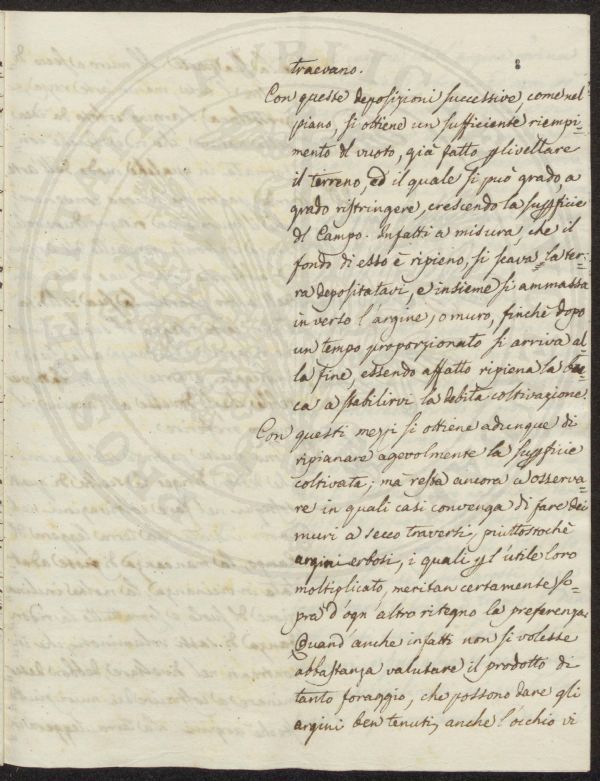 8
traevano.
Con queste deposizioni successive come nel
piano, si ottiene un sufficiente riempi-
mento dl vuoto, già fatto p livellare
il terreno, ed il quale si può grado a
grado ristringere, crescendo la suppficie
dl Campo. Infatti a misura, che il
fondo di esso è ripieno, si scava la ter-
ra depositatavi, e insieme si ammassa
in verso l'argine, o muro, finchè dopo
un tempo proporzionato si arriva al-
la fine, essendo affatto ripiena la bu-
ca a stabilirvi la debita coltivazione.
Con questi mezzi si ottiene adunque di
ripianare agevolmente la suppficie
coltivata; ma resta ancora a osserva-
re in quali casi convenga di fare dei
muri a secco traversi, piuttostochè
argini erbosi, i quali p l'utile loro
moltiplicato, meritan certamente so-
pra d'ogn'altro ritegno la preferenza.
Quand'anche infatti non si volesse
abbastanza valutare il prodotto di
tanto foraggio, che possono dare gli
argini ben tenuti, anche l'occhio vi